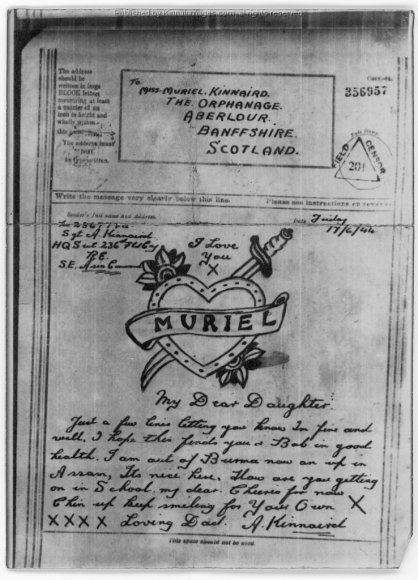 The address
should be
written in large
BLOCK letters
measuring at least
a quarter of an
inch in height and
wholly within
The address must
NOT
be typewritten.
To
MISS. MURIEL. KINNAIRD.
THE. ORPHANAGE.
ABERLOUR.
BANFFSHIRE.
SCOTLAND.
356957
FIELD CENSOR
201
Write the message very clearly below this line.
Please see instructions on reverse
Sender's full name and address.
Date Friday
17/6/44
Sgt A. Kinnaird
R.E.
S.E. Asia Command
I Love
You
X
MURIEL
My Dear Daughter.
Just a few lines letting you know Im fine and
well. I hope this finds you & Bob in good
health. I am out of Burma now an up in
Assam, Its nice here. How are you getting
on in School my dear. Cheerio for now
Chin up keep smeling for Your Own X
X X X X Loving Dad. A. Kinnaird
This space should not be used.